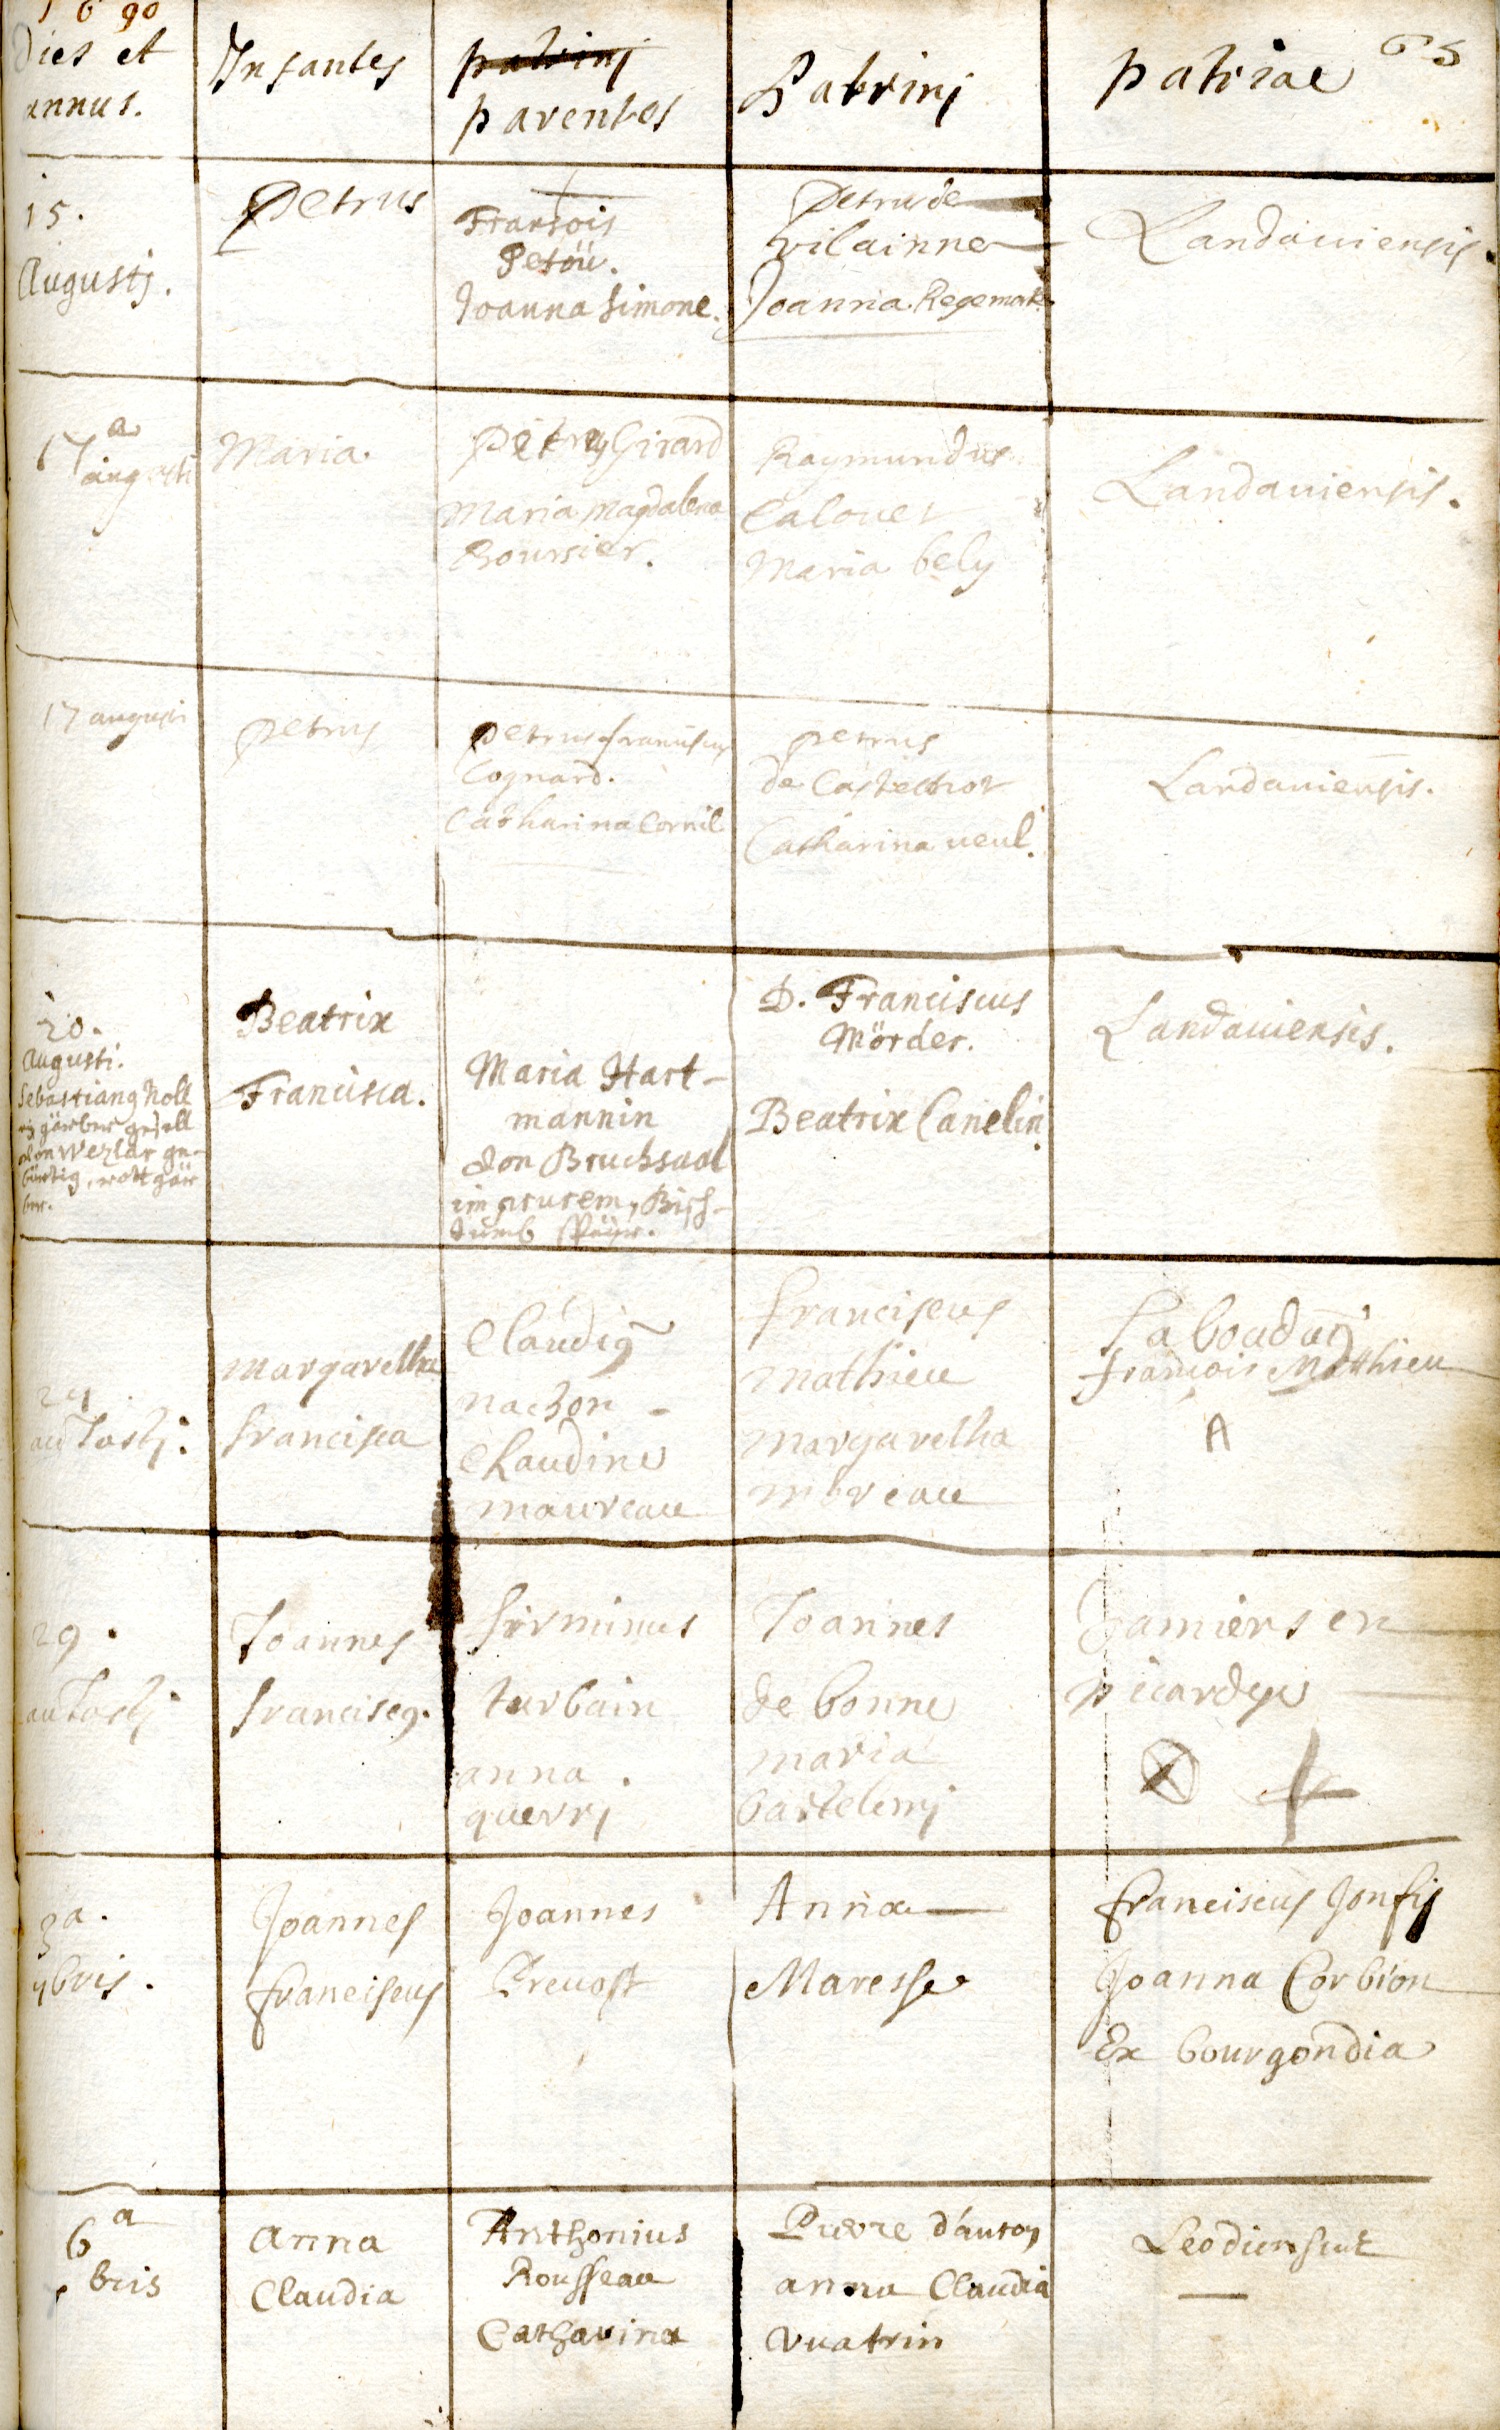 1690
65
Dies et
annus.
Infantes
patrinj
parentes
Patrinj
patriae
15.
Augustj.
Petrus
Fransois
Petöu.
Joanna Simone.
Petrus de
vilainne
Joanna Regemorte
Landauiensis.
17a
augusti
Maria.
Petrus Girard
Maria Magdalena
Boursier.
Raymundus
Calouet
Maria bely
Landauiensis.
17 augusti
Petrus
Petrus franciscus
Cognard.
Catharina Cornil
Petrus
de Castelbrot
Catharina neul.
Landauiensis.
20.
Augusti.
Sebastiang Noll
gärber gesell
von Wezlar ge-
bürtig, rott gär
ber.
Beatrix
Francisca.
Maria Hart-
mannin
von Bruchsaal
im Bisch-
tumb Speyer.
D. Franciscus
Mörder.
Beatrix Canelin.
Landauiensis.
24
auGustj.
Margaretha
francisca
Claudig
nachon -
Claudine
maureau
franciscus
mathieu
margaretha
moreau
francois Matthieu
A
29.
auGustj
Joannes
franciscg.
firminus
turbain
anna.
querrj
Joannes
de bonne
maria
bartelemj
Damiens en
picardye
3a.
7bris.
Joannes
franciscus
Joannes
Preuost
Anna
Maresse
franciscus Jonfis
Joanna Corbion
Ex bourgondia
6a
bris
anna
Claudia
Anthonius
Rousseau
Catharina
Pierre d'auton
anna Claudia
vuatrin
Leodiensent